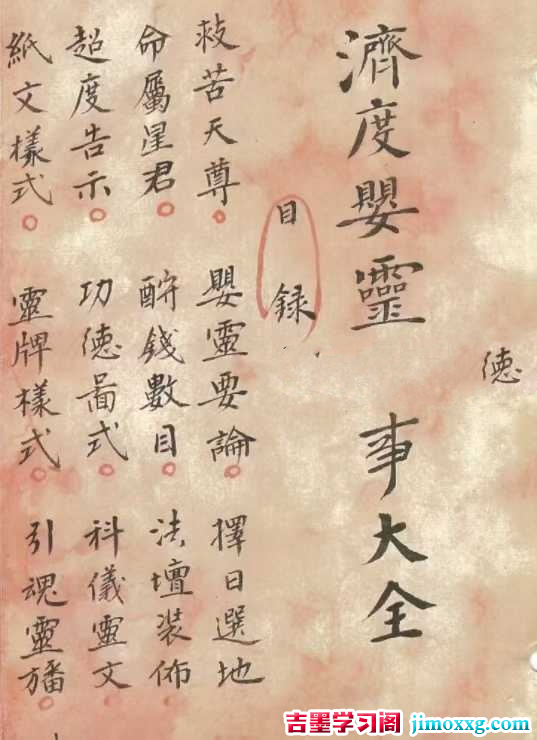 徳
濟度嬰靈 事大全
目録
救苦天尊 嬰靈要論 擇日選地
命屬星君 酧錢數目 法壇装佈
超度告示 功徳啚式 科儀靈文
紙文樣式 靈牌樣式 引魂靈旛
吉墨学习阁 jimoxxg.com